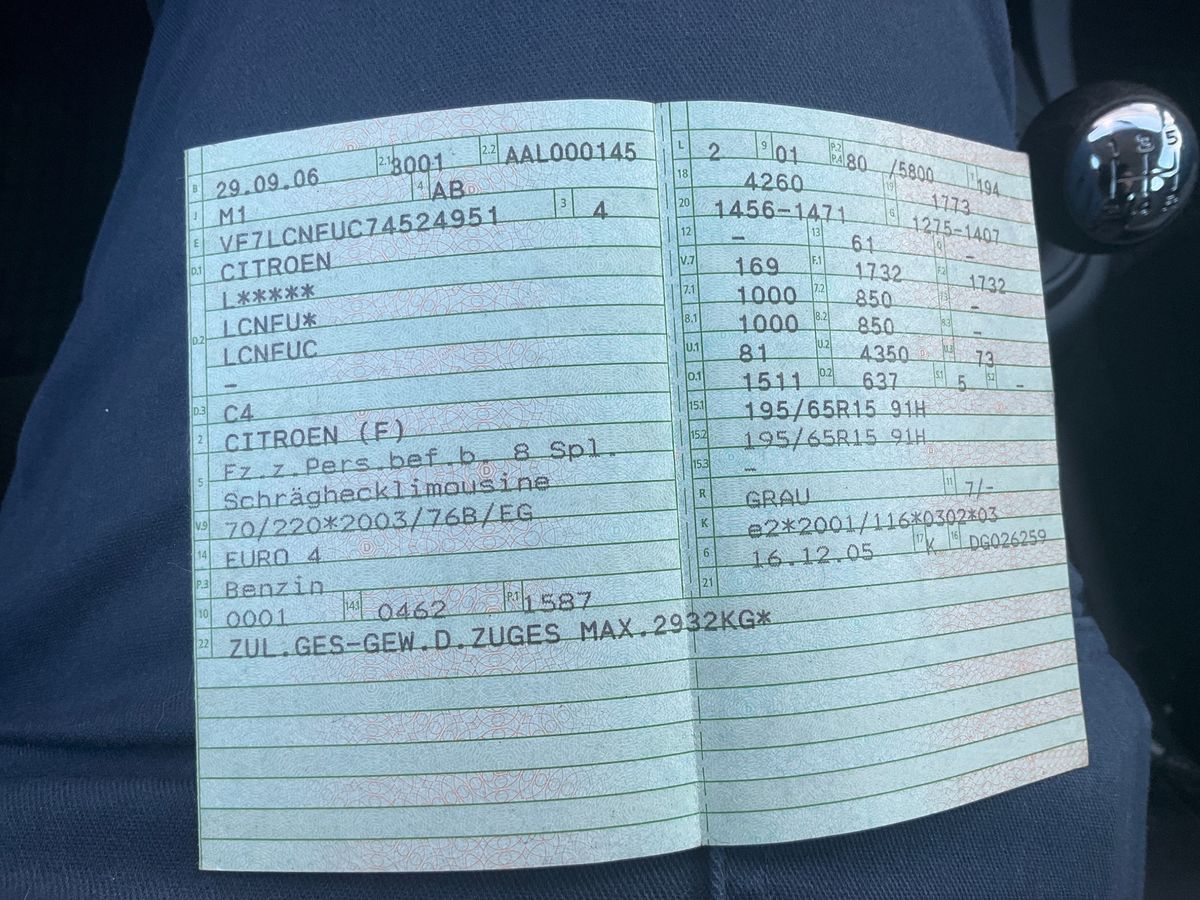 B 29.09.06 2.1 3001 2.2 AAL000145
J M1 4 AB
E VF7LCNFUC74524951 3 4
D.1 CITROEN
L*****
D.2 LCNFU*
LCNFUC
–
D.3 C4
2 CITROEN (F)
5 Fz.z.Pers.bef.b. 8 Spl.
Schräghecklimousine
V.9 70/220*2003/76B/EG
14 EURO 4
P.3 Benzin
10 0001 14.1 0462 P.1 1587
22 ZUL.GES-GEW.D.ZUGES MAX.2932KG*
L 2 9 01 P.2 P.4 80 /5800 T 194
18 4260 19 1773
20 1456-1471 G 1275-1407
12 – 13 61 Q –
V.7 169 F.1 1732 F.2 1732
7.1 1000 7.2 850 7.3 –
8.1 1000 8.2 850 8.3 –
U.1 81 U.2 4350 U.3 73
O.1 1511 O.2 637 S.1 5 S.2 –
15.1 195/65R15 91H
15.2 195/65R15 91H
15.3 –
R GRAU 11 7/-
K e2*2001/116*0302*03
6 16.12.05 17 K 16 DG026259
21
1 3 5